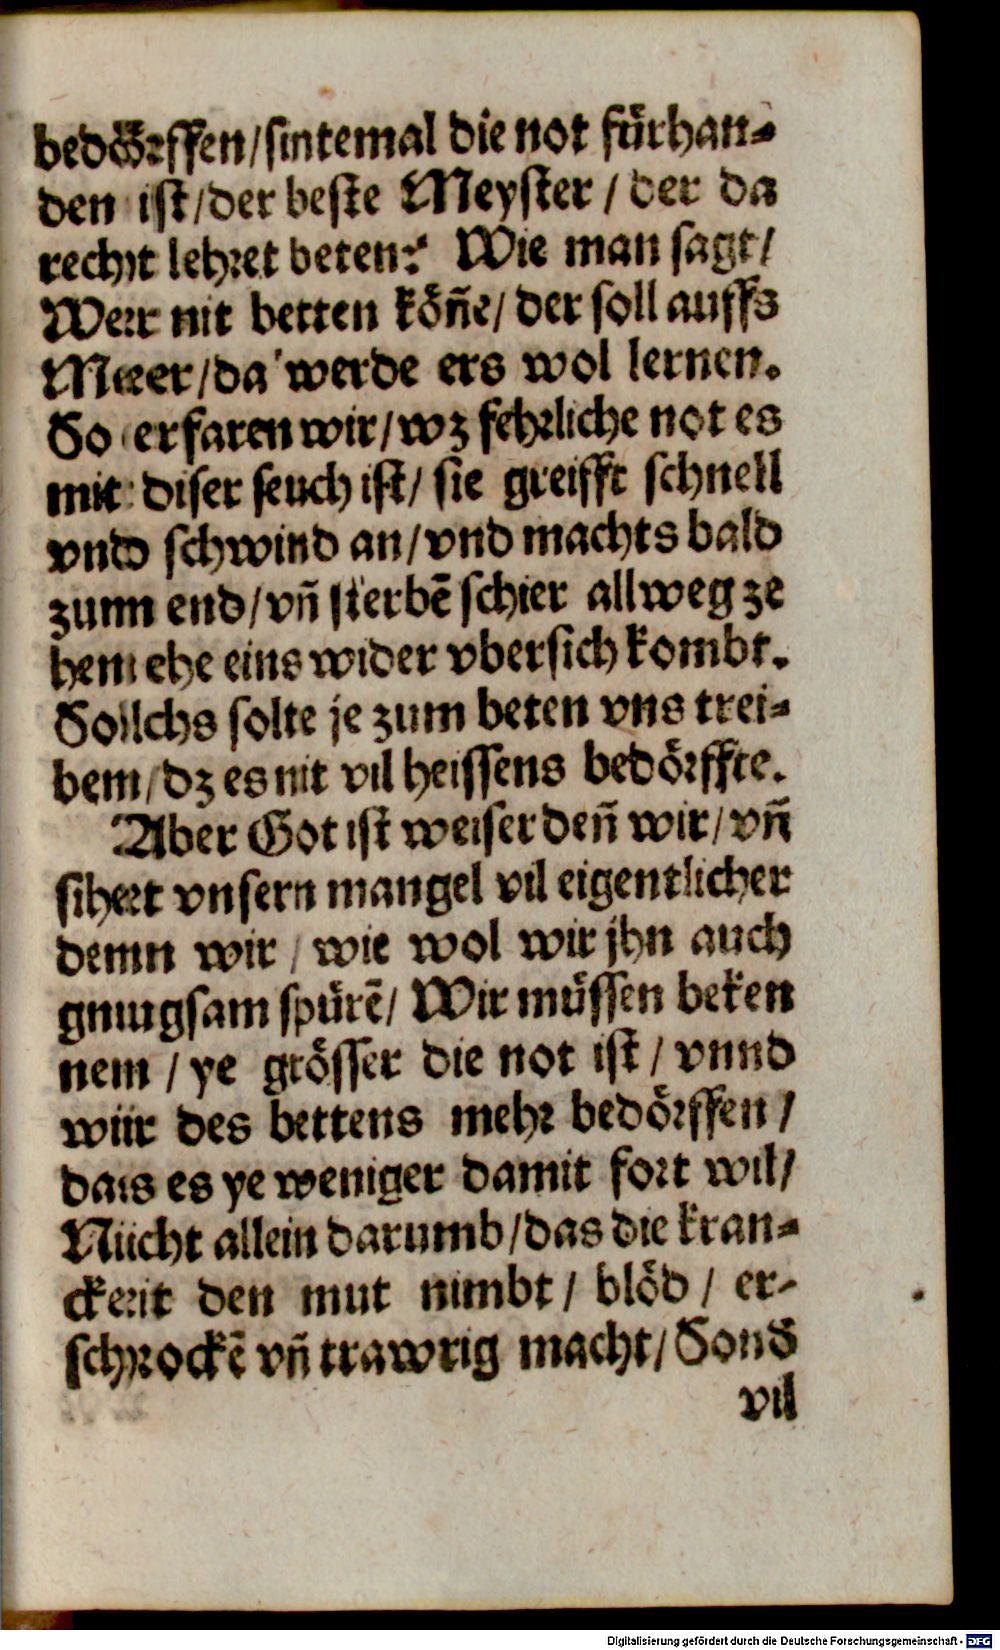 bedörffen/sintemal die not fürhan⸗
den ist/der beste Meyster / der da
recht lehret beten? Wie man sagt/
Wer nit betten köñe/ der soll auffs
Meer/da werde ers wol lernen.
So erfaren wir/wz fehrliche not es
mit diser seuch ist/ sie greifft schnell
vnd schwind an/vnd machts bald
zum end/vñ sterbē schier allweg ze
hen ehe eins wider vbersich kombt.
Solchs solte je zum beten vns trei⸗
ben/dz es nit vil heissens bedörffte.
Aber Got ist weiser deñ wir/vñ
sihet vnsern mangel vil eigentlicher
denn wir / wie wol wir jhn auch
gnugsam spürē/ Wir müssen beken
nen / ye grösser die not ist / vnnd
wir des bettens mehr bedörffen /
das es ye weniger damit fort wil/
Nicht allein darumb/das die kran⸗
ckeit den mut nimbt / blöd / er-
schrockē vñ trawrig macht/ Sond
vil
Digitalisierung gefördert durch die Deutsche Forschungsgemeinschaft - DFG